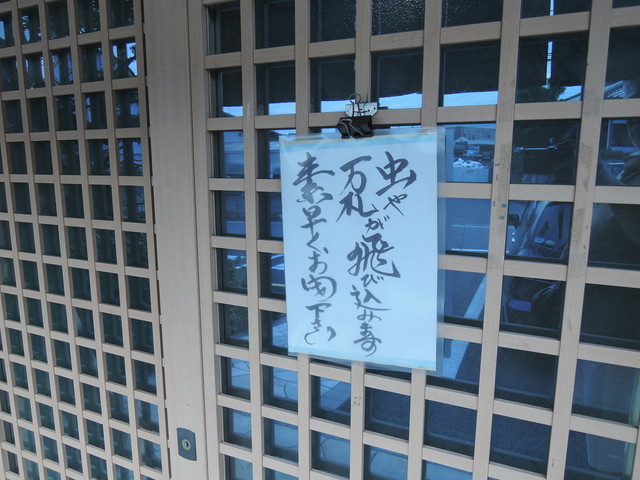 虫や
万札が飛び込み寿
素早くお閉下さい